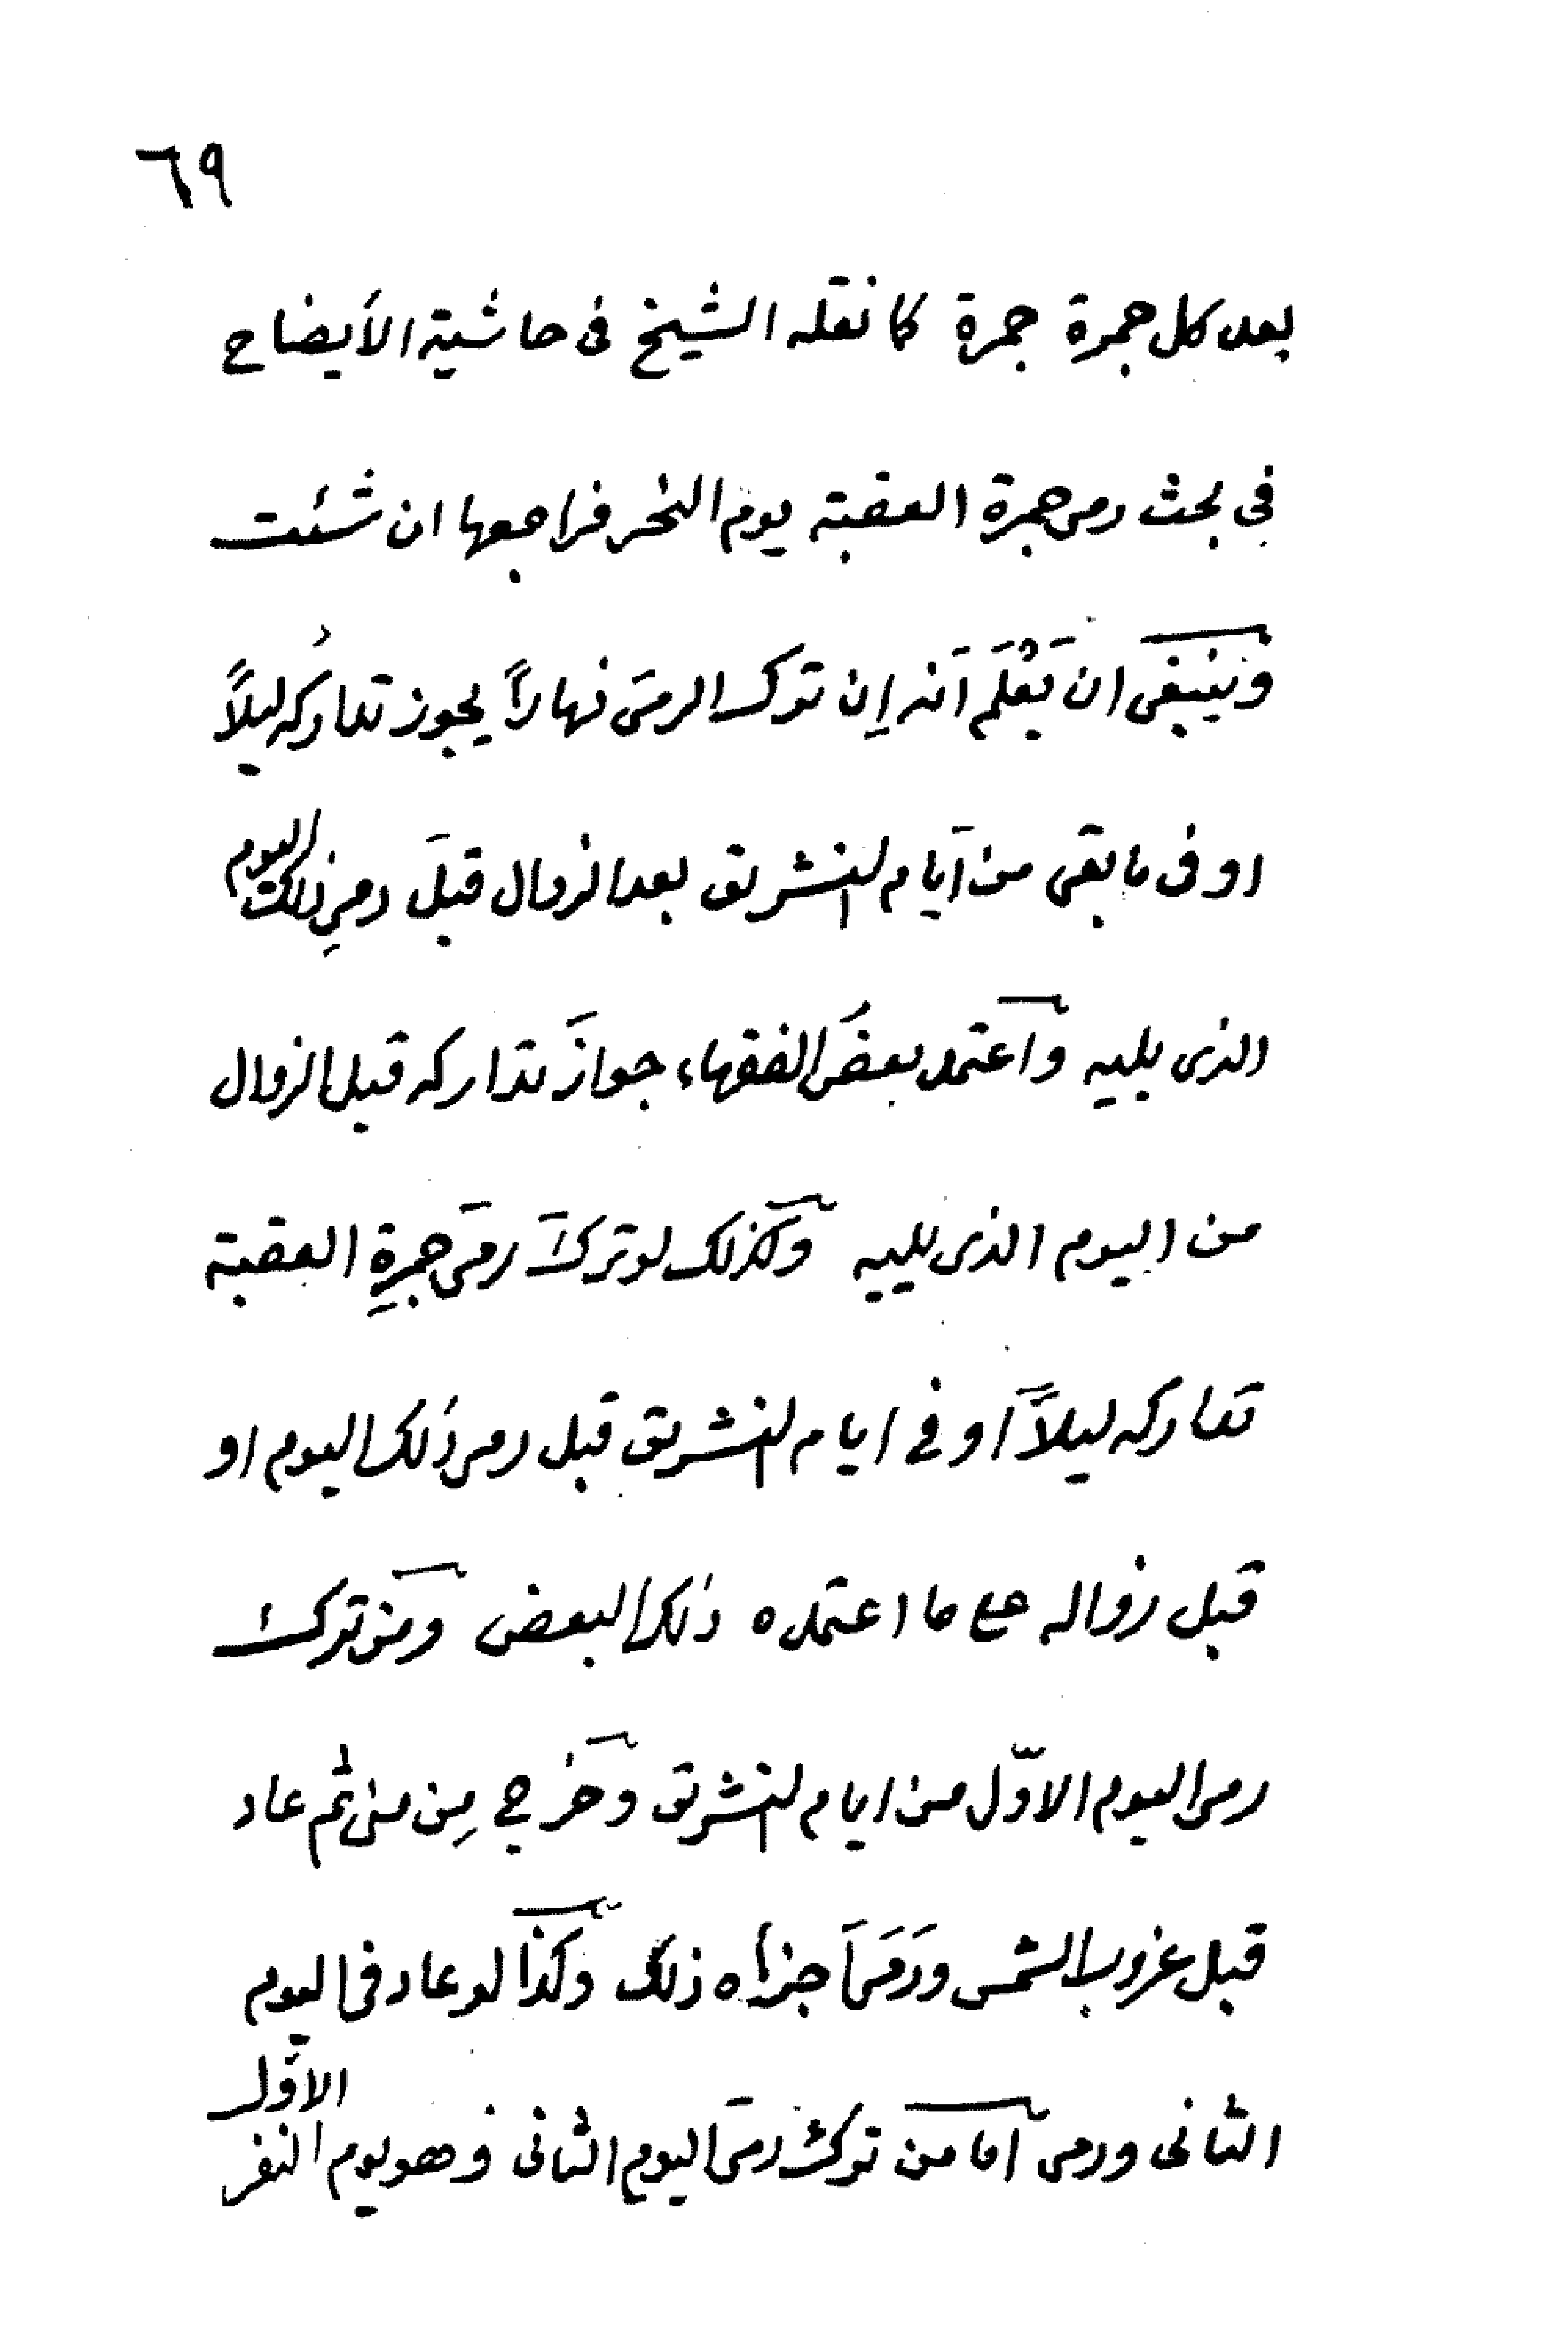 ٦٩
بعد كل جمرة جمرة كما نقله الشيخ فى حاشية الأيضاح
فى بحث رمى جمرة العقبة يوم النحر فراجعها ان شئت
وينبغى ان يَعْلَم اَنه اِن ترك الرمىَ نهاراً يجوز تداركُه ليلاً
او فى ما بقى من اَيام التشريق بعد الزوال قبلَ رمىِ ذلك اليوم
الذى يليه واَعتمد بعضُ الفقهاء جوازَ تداركه قبل الزوال
من اليوم الذى يليه وكذلك لو تركَ رمىَ جمرةِ العقبة
تداركه ليلاً اَو فى ايام التشريق قبل رمى ذلك اليوم او
قبل زواله على ما اعتمده ذلك البعض ومَن ترك
رمى اليوم الاوّل من ايام التشريق وخرج مِن منى ثم عاد
قبل غروب الشمس ورَمَى اَجزاه ذلك وكذا لو عاد فى اليوم
الثانى ورمى اَما من ترك رمىَ اليوم الثانى وهو يوم النفر الاوّل